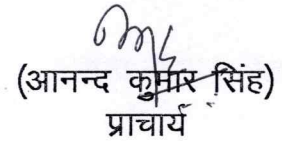 (आनन्द कुमार सिंह)
प्राचार्य